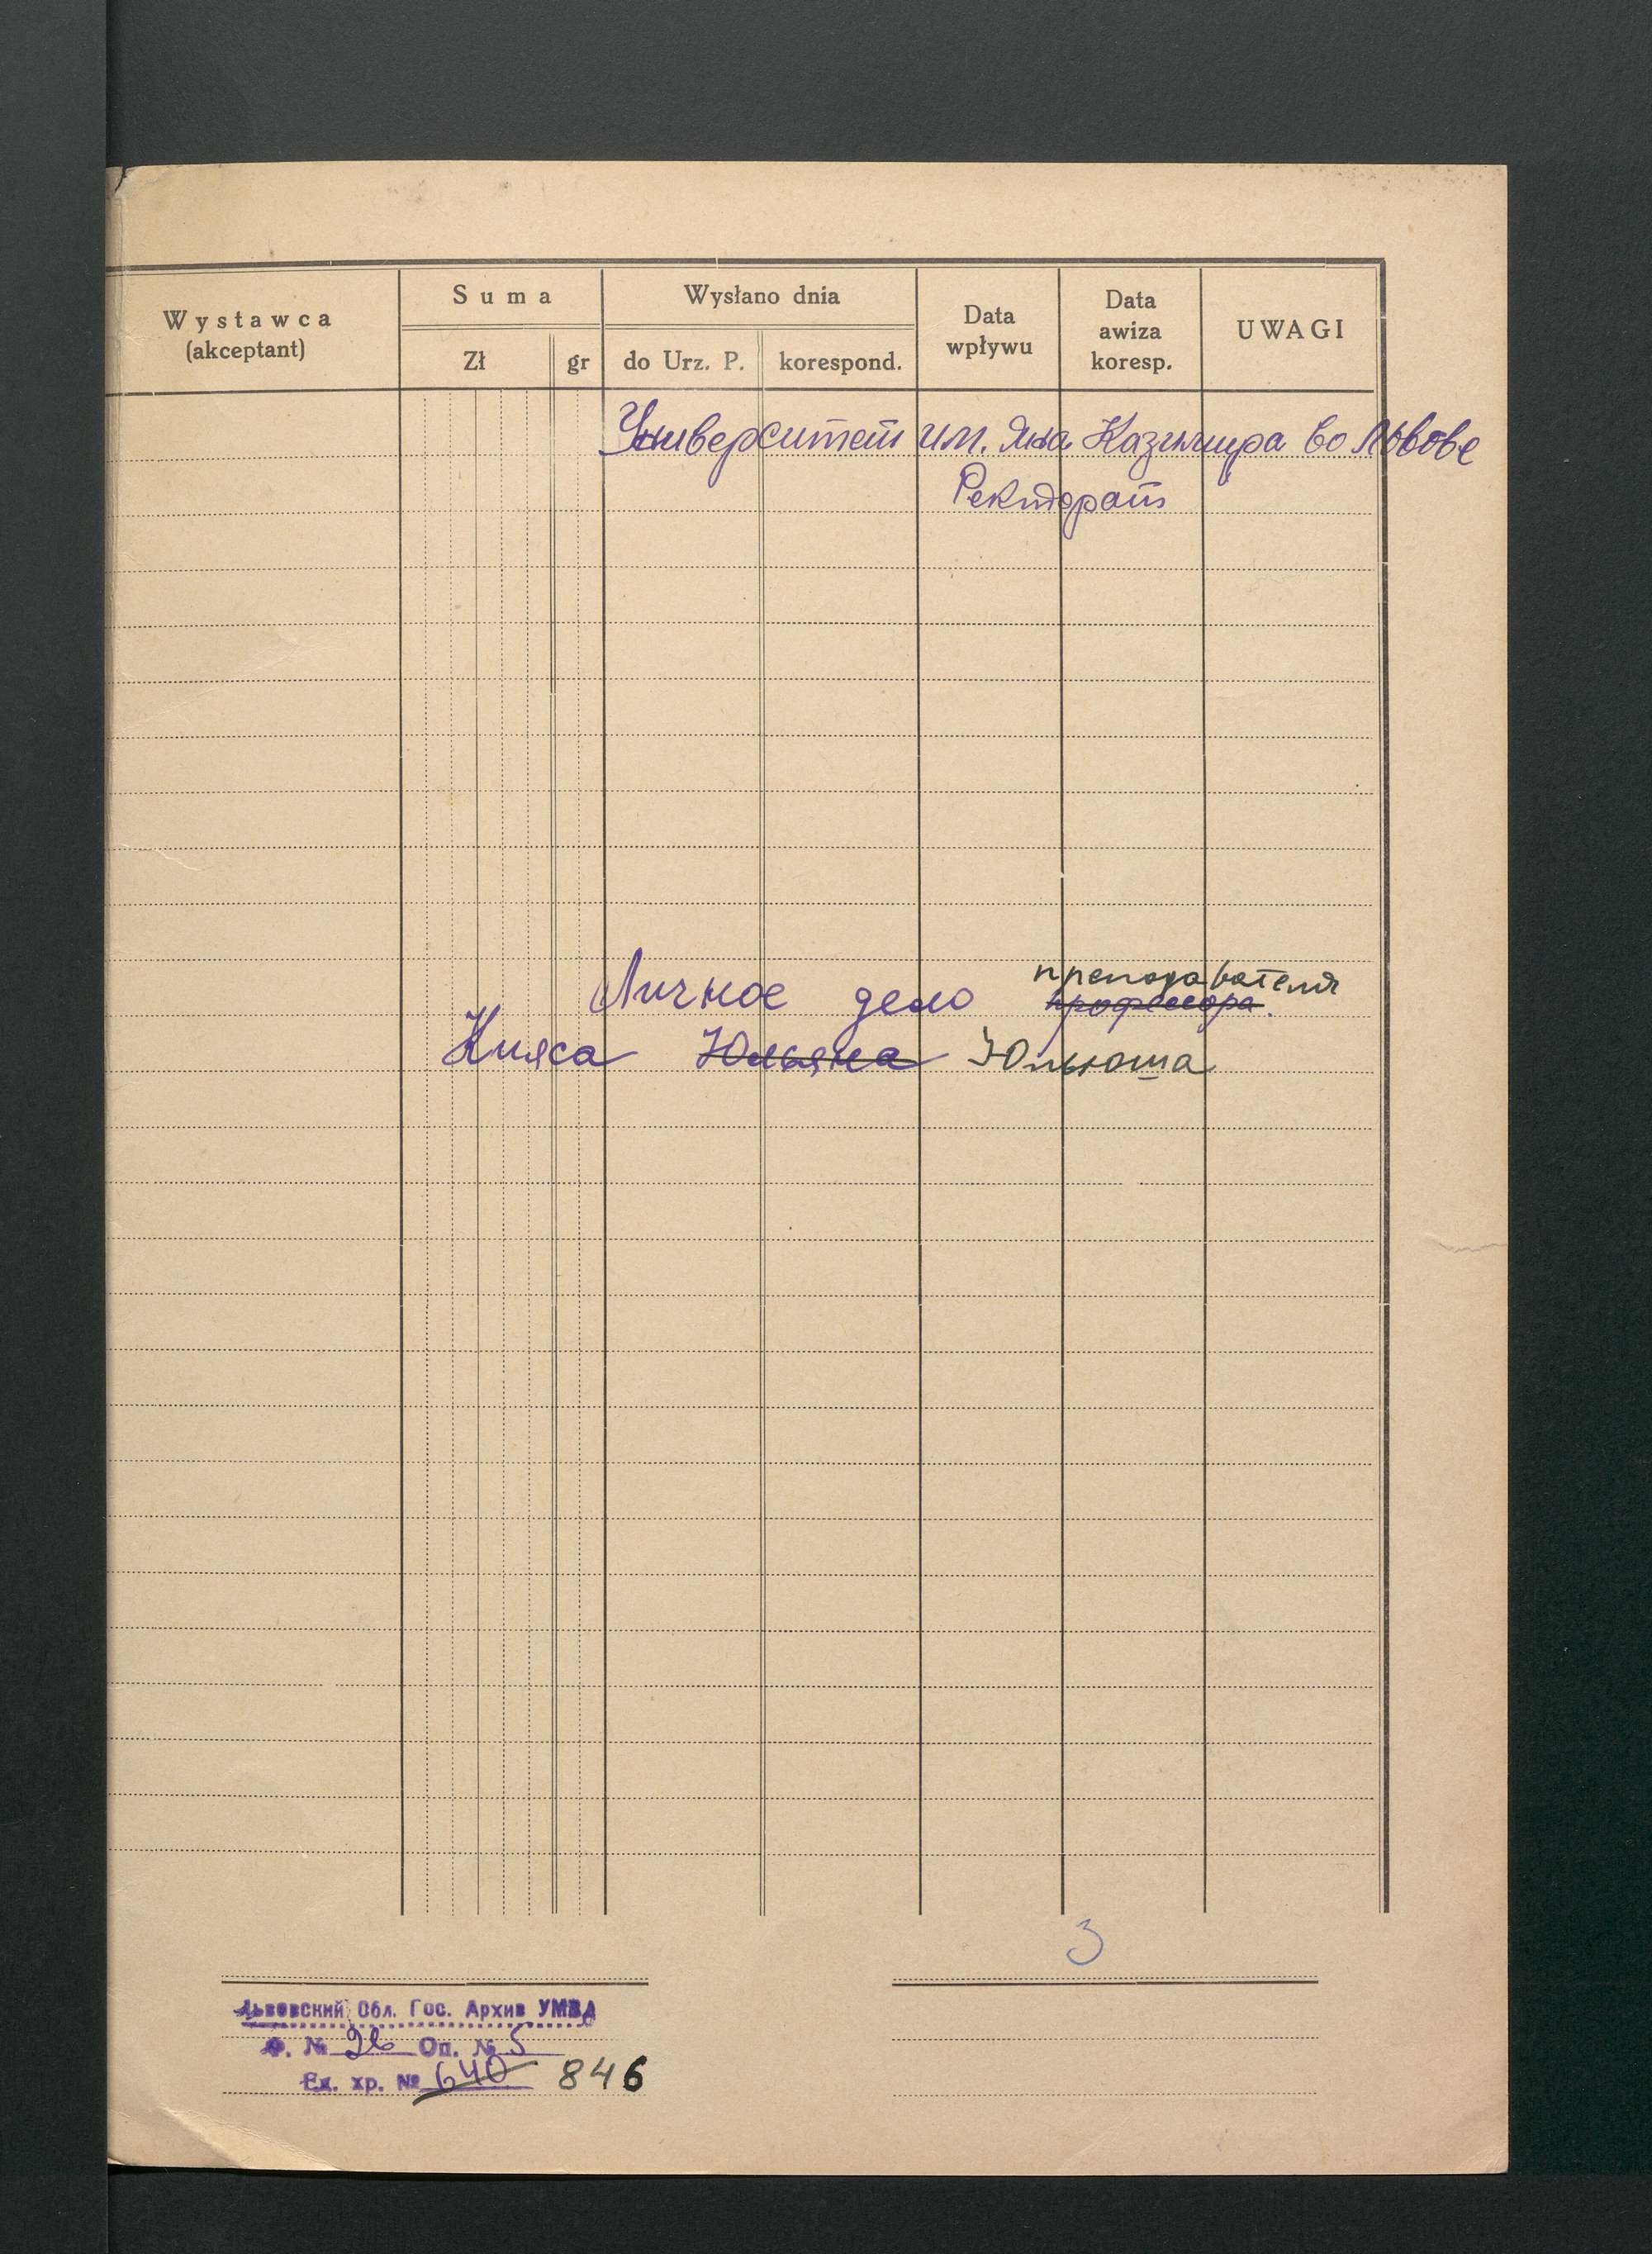 Wystawca
(akceptant)
Suma
Zł gr
Wysłano dnia
do Urz. P. korespond.
Data
wpływu
Data
awiza
koresp.
UWAGI
Университет им. Яна Казимира во Львове
Ректорат
преподавателя
Личное дело профессора.
Кияса Юльяна Юльюша
3
Львовский Обл. Гос. Архив УМВД
Ф. № 26 Оп. № 5
Ед. хр. № 640 846